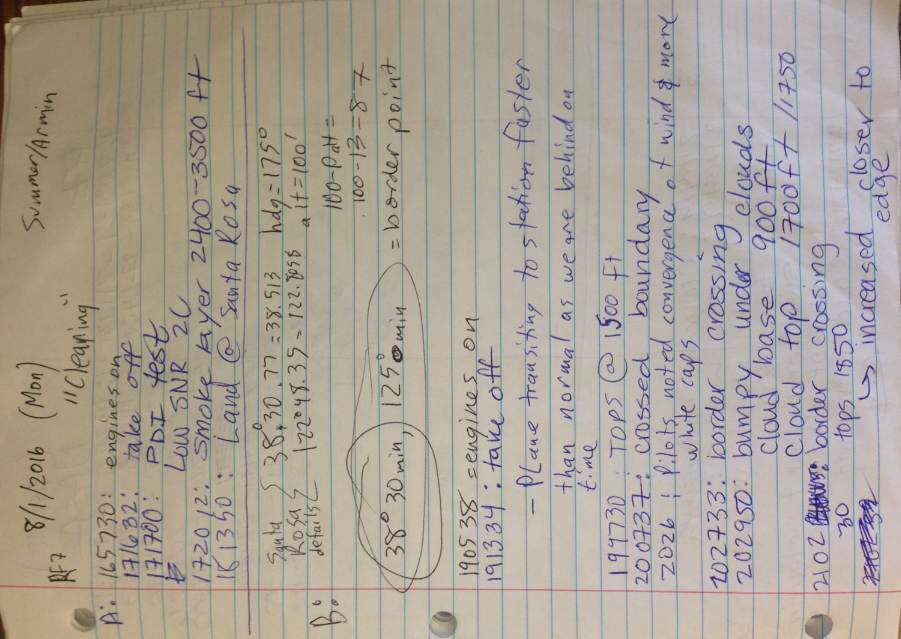 RF7 8/1/2016 (Mon) Summer/Armin
"Cleaning"
A: 165730: engines on
171632: take off
171700: PDI test
Low SNR 2C
172012: smoke layer 2400-3500 ft
181350: Land @ Santa Rosa
Santa Rosa details { 38° 30.77 = 38.513 hdg = 175°
122° 48.35 = 122.8058 alt = 100'
B: 100-Palt =
100-13 = 87
38° 30 min, 125° 0 min = border point
190538 = engines on
191334: take off
- Plane transiting to station faster
than normal as we are behind on
time
194730: TOPS @ 1500 ft
200737: crossed boundary
2026: Pilots noted convergence of wind & more
white caps
202733: border crossing
202950: bumpy under clouds
cloud base 900 ft
cloud top 1700 ft / 1750
2102 30 border crossing
tops 1850
↳ increased closer to
edge